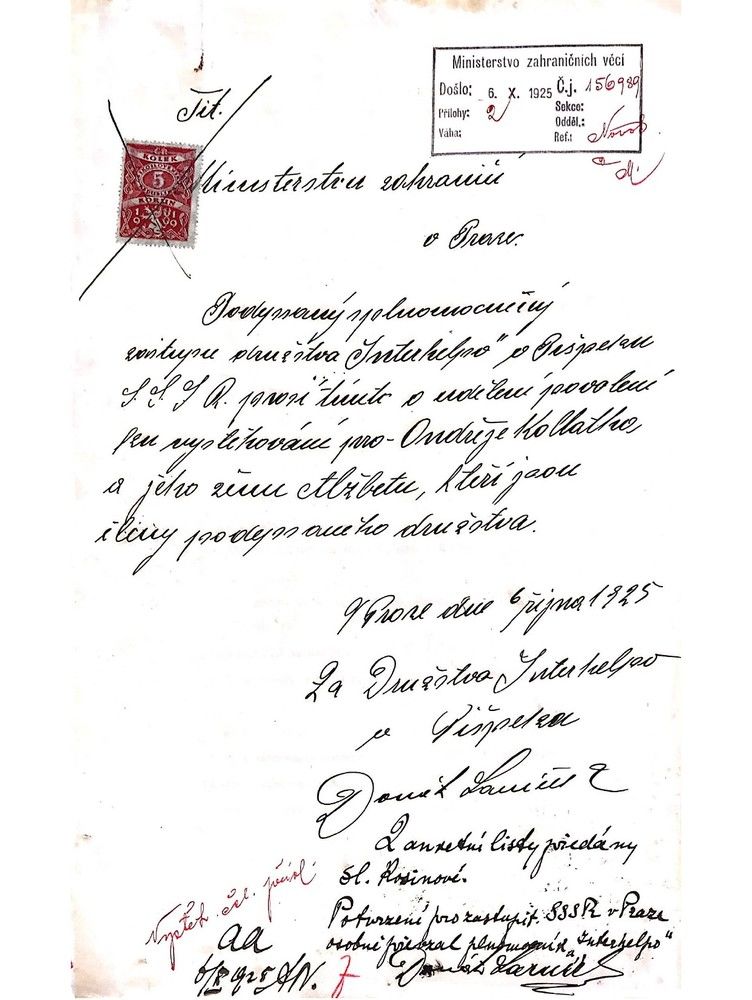 Ministerstvo zahraničních věcí
Došlo: 6. X. 1925 Č.j. 156989
Přílohy: 2 Sekce:
Odděl.:
Váha: Ref.:
Tit.
KOLEK
5
KORUN
Ministerstvu zahranič
v Praze.
Podepsaný splnomocněný
zástupce družstva "Interhelpo" v Pišpeku
S.S.S.R. prosí tímto o udělení povolení
ku vystěhování pro Ondřeje Kollatha,
a jeho ženu Alžbetu, kteří jsou
členy podepsaného družstva.
V Praze dne 6 října 1925
Za Družstva Interhelpo
v Pišpeku
Donát
2 anketní listy předány
sl. Rosinové.
Potvrzení pro zastupit. SSSR v Praze
osobně převzal plnomocník "Interhelpo"
Donát
aa